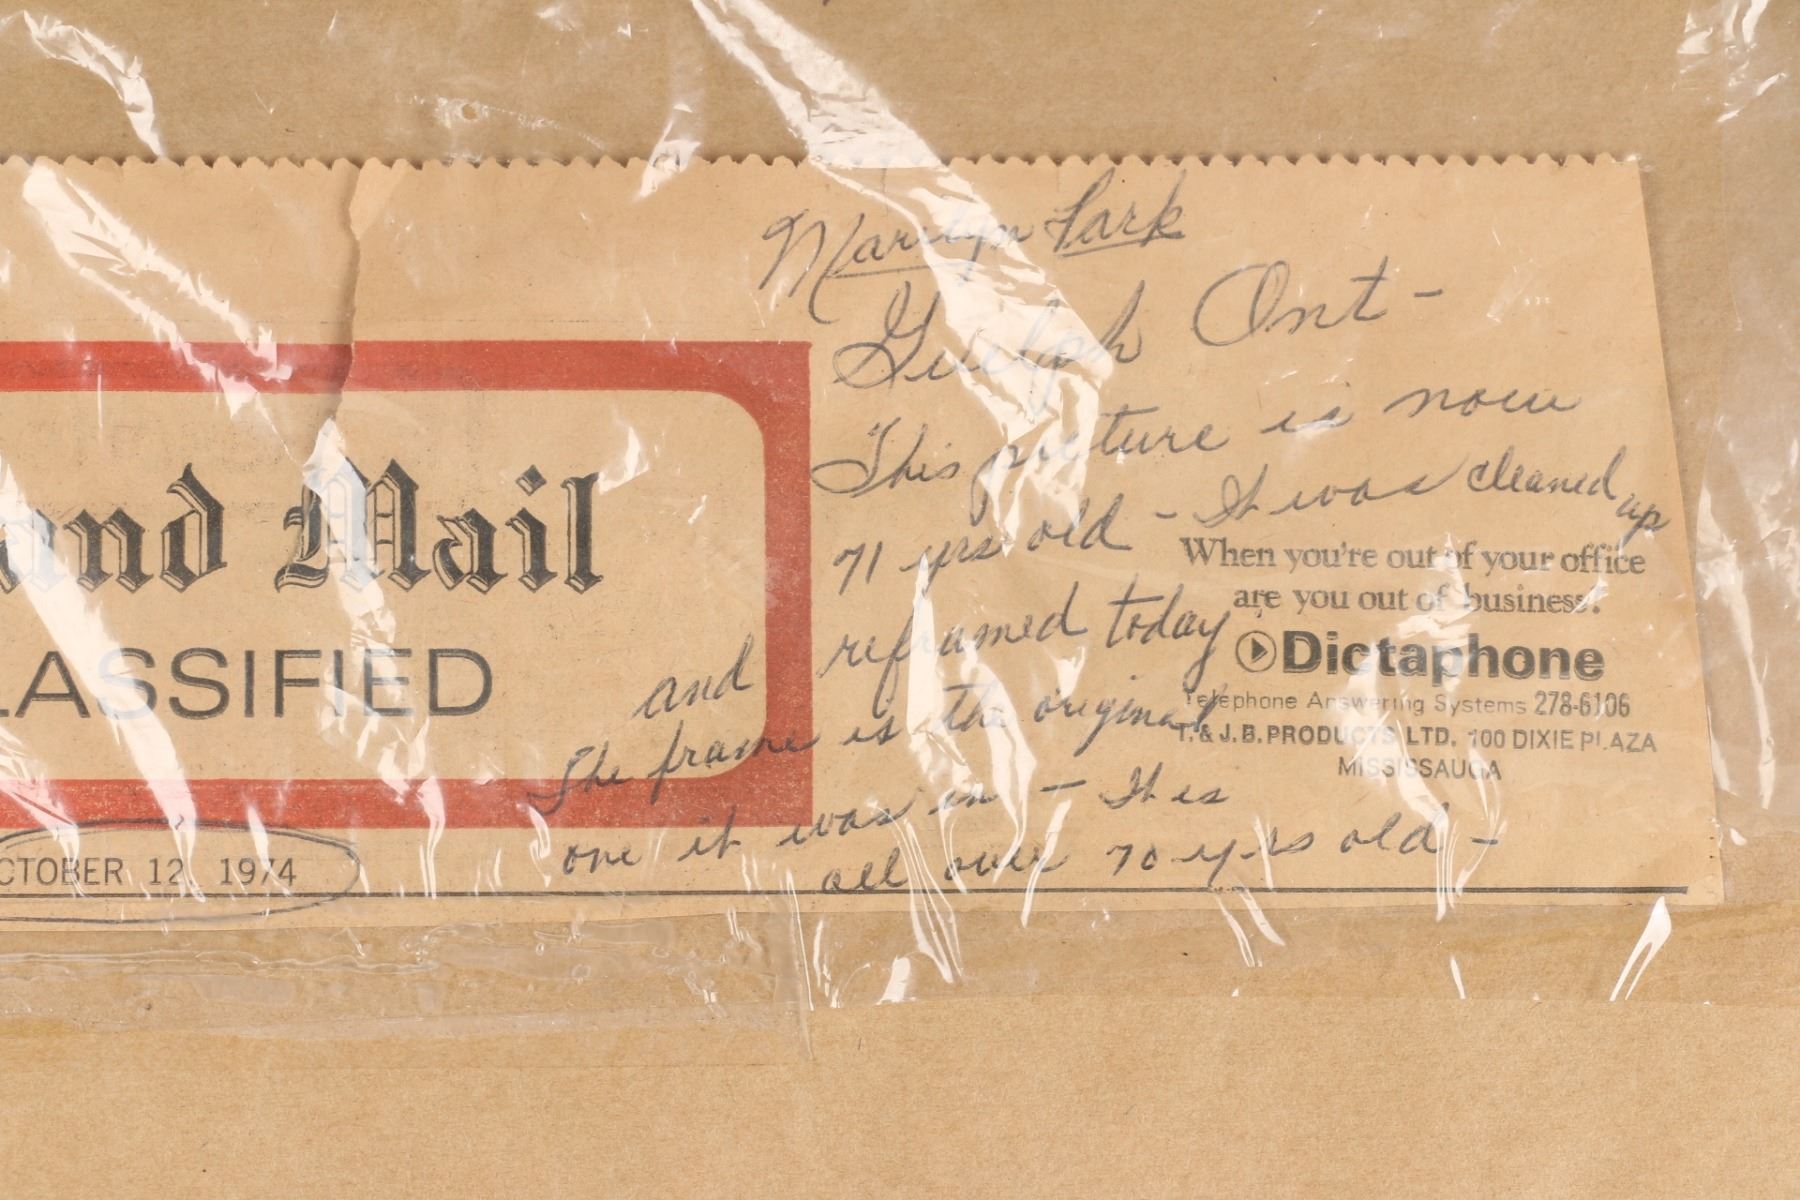 Marilyn Lark
Guelph Ont-
This picture is now
71 yrs old - It was cleaned up
and reframed today
The frame is the original
one it was in - It is
all over 70 yrs old -
and Mail
LASSIFIED
CTOBER 12, 1974
When you're out of your office
are you out of business?
Dictaphone
Telephone Answering Systems 278-6106
T. & J. B. PRODUCTS LTD. 100 DIXIE PLAZA
MISSISSAUGA